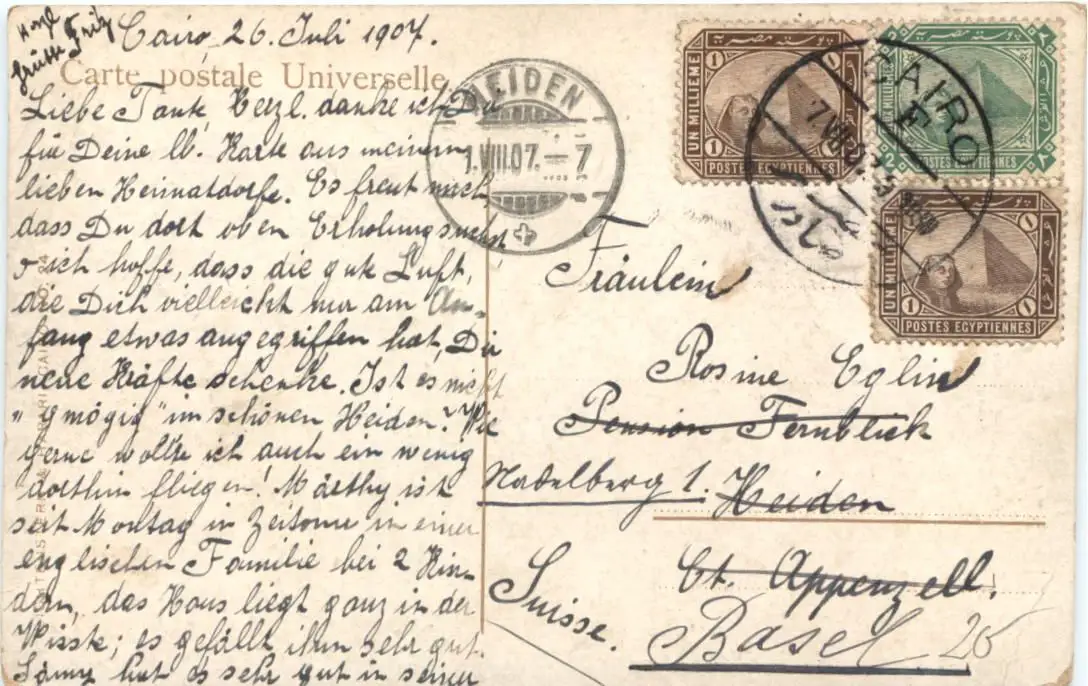 Herzl.
Grüsse Fritz
Cairo, 26. Juli 1907.
Carte postale Universelle
Liebe Tante, Herzl. danke ich Du
für Deine lb. Karte aus meinem
lieben Heimatdorfe. Es freut mich
dass Du dort oben Erholung suchst
& ich hoffe, dass die gute Luft,
die Dich vielleicht nur am An-
fang etwas angegriffen hat, Dir
neue Kräfte schenke. Ist es nicht
"gmögig" im schönen Heiden? Wie
gerne wollte ich auch ein wenig
dorthin fliegen! Märthy ist
seit Montag in Zeitoun in einer
englischen Familie bei 2 Kin-
dern, das Haus liegt ganz in der
Wüste; es gefällt ihm sehr gut.
hat es sehr gut in seiner
HEIDEN
1.VIII.07.–7
UN MILLIEME
1 1
POSTES EGYPTIENNES
بوسته مصريه
DEUX MILLIEMES
2
POSTES EGYPTIENNES
بوسته مصريه
UN MILLIEME
1 ١
POSTES EGYPTIENNES
بوسته مصريه
CAIRO
E
Fräulein
Rosine Eglin
Pension Fernblick
Nadelberg 1. Heiden
Ct. Appenzell.
Suisse.
Basel
25